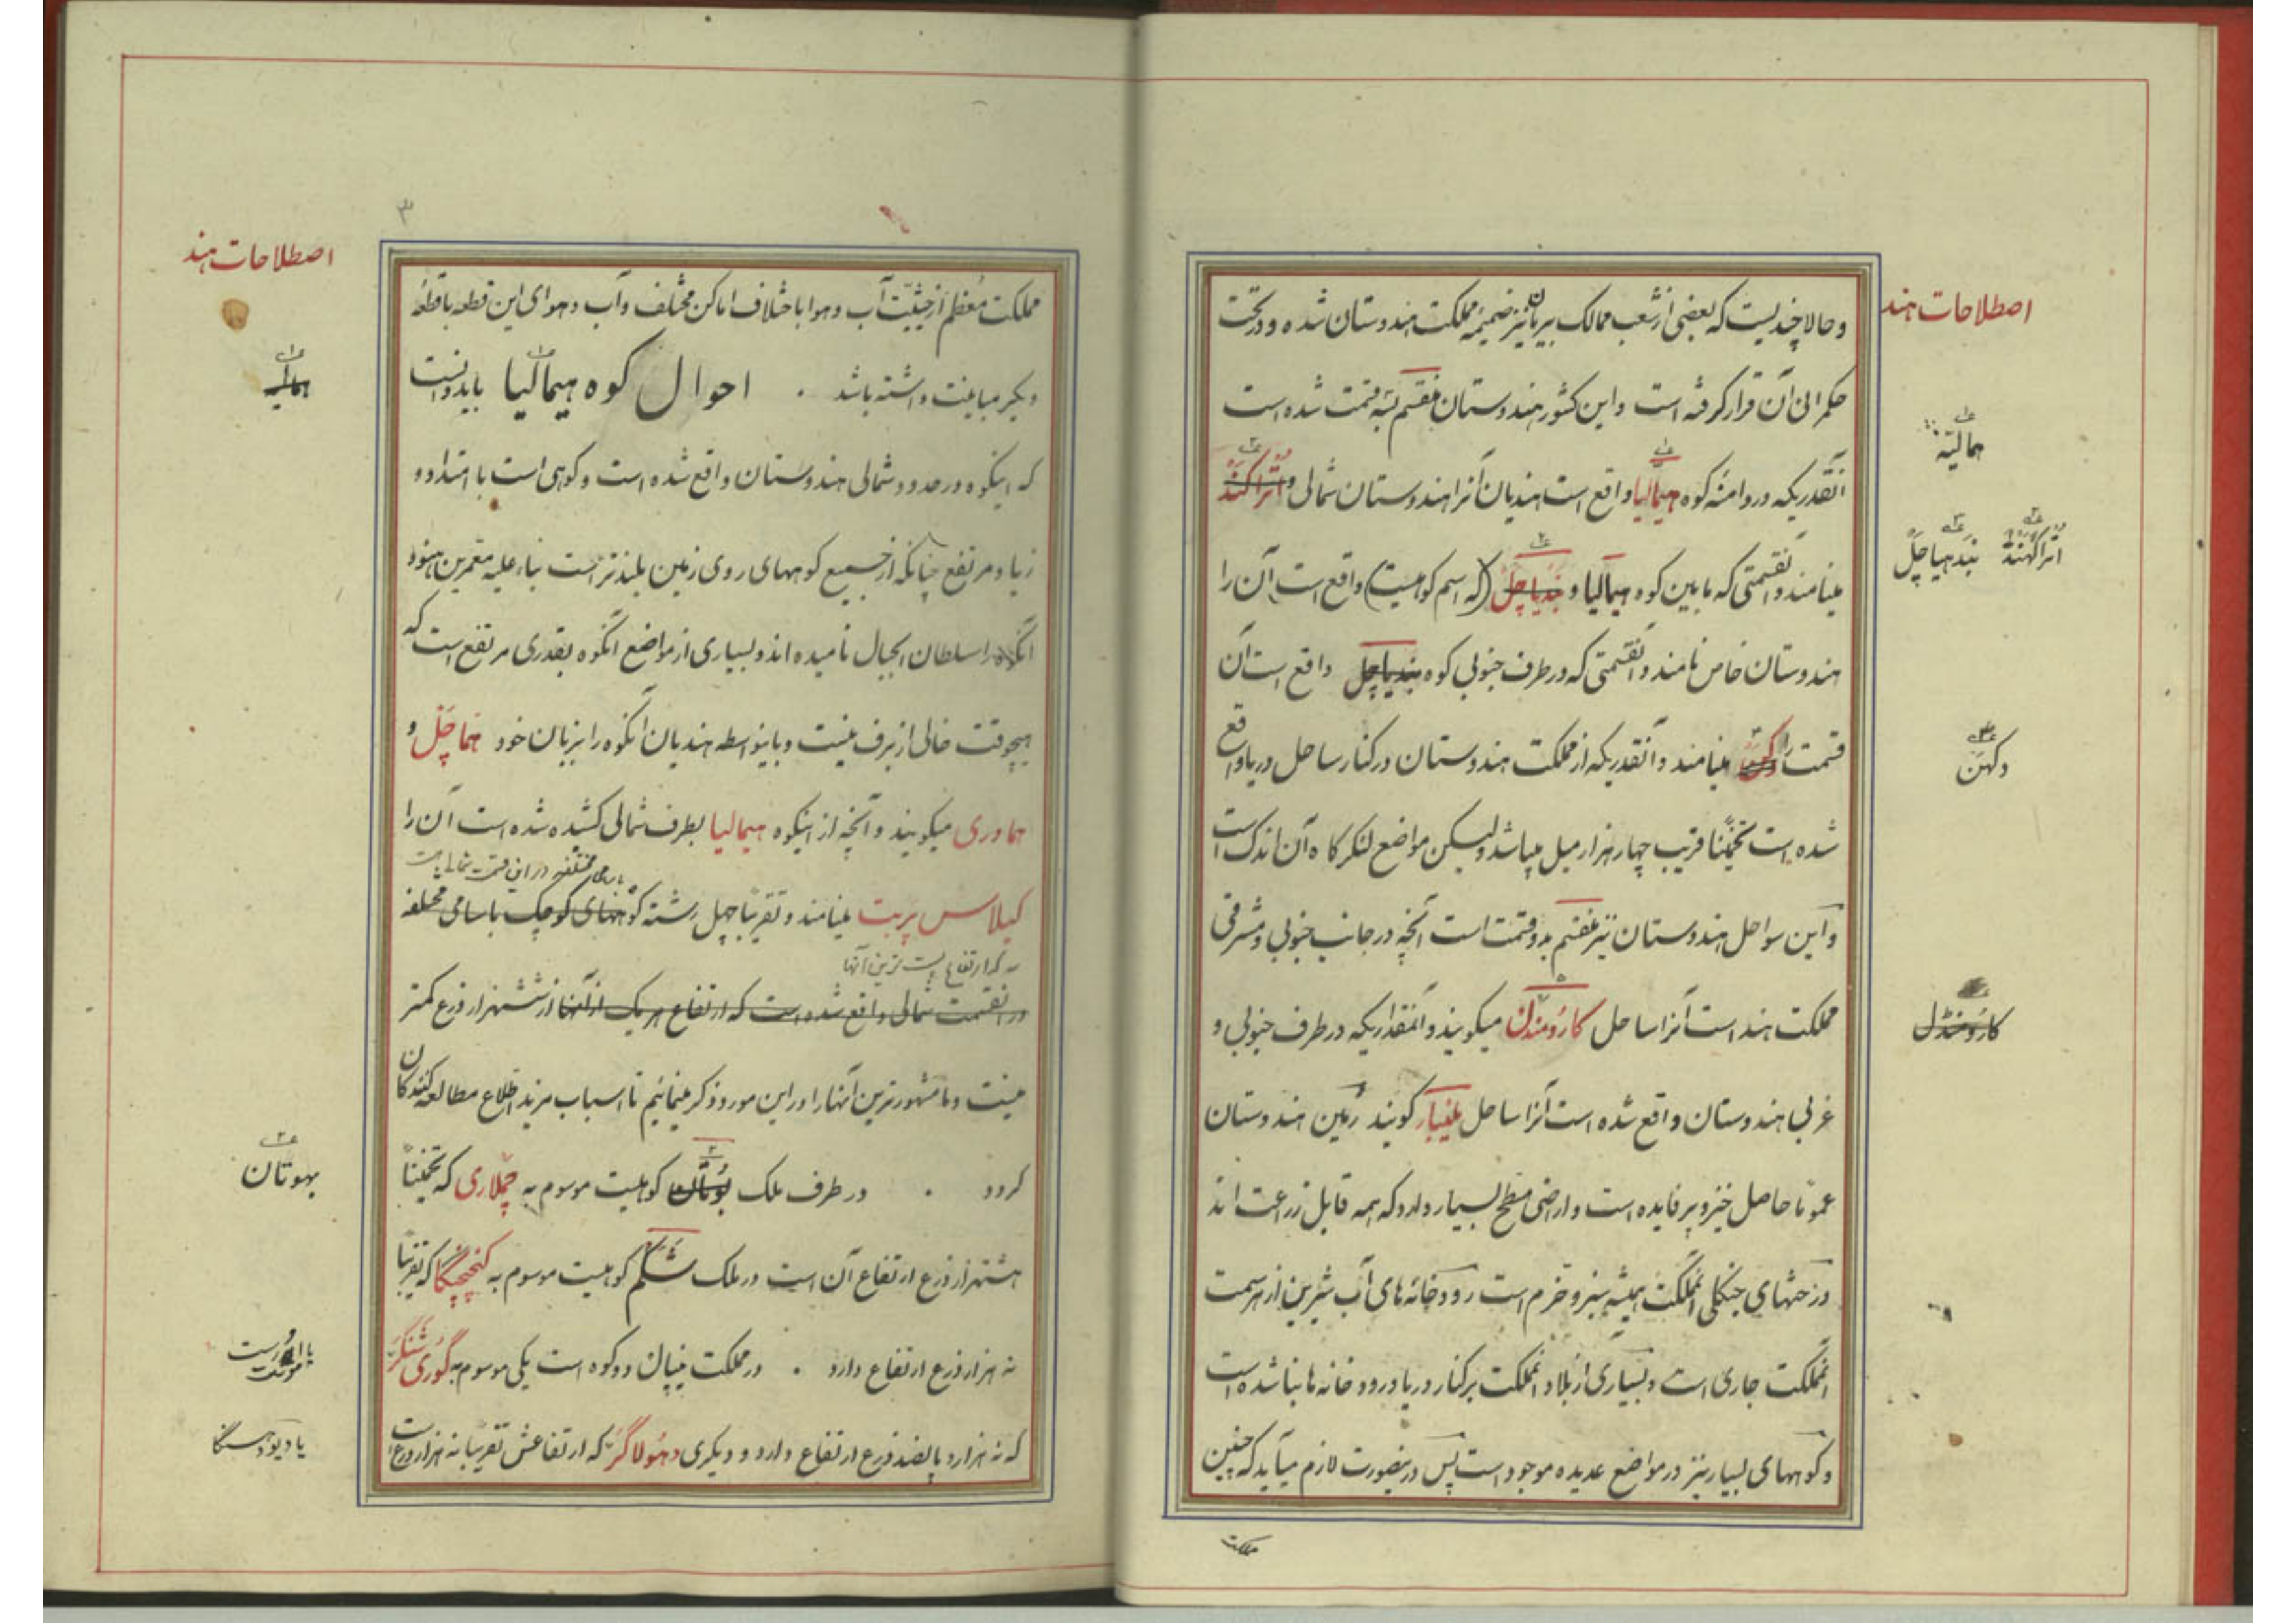 اصطلاحات هند
وحالا چندیست که بعضی از شعب ممالک بیرمان نیز ضمیمه مملکت هندوستان شده و در تحت
حکمرانی آن قرار گرفته است واین کشور هندوستان منقسم بسه قسمت شده است
همالیه
آنقدریکه در دامنه کوه هیمالیا واقع است هندیان آنرا هندوستان شمالی و اتراکند
اتراکهند بندهیاچل
مینامند و آنقسمتی که مابین کوه هیمالیا و بندیاچل (که اسم کوهیست) واقع است آن را
هندوستان خاص نامند و آنقسمتی که در طرف جنوبی کوه بندیاچل واقع است آن
قسمت را دکن مینامند و آنقدریکه از مملکت هندوستان در کنار ساحل دریا واقع
دکهن
شده است تخمیناً قریب چهار هزار میل میباشد ولیکن مواضع لنکرکاه آن اندک است
واین سواحل هندوستان نیز منقسم بدو قسمت است آنچه در جانب جنوبی و مشرقی
مملکت هند است آنرا ساحل کارومندل میکویند و آنمقداریکه در طرف جنوبی و
کارومنڈل
غربی هندوستان واقع شده است آنرا ساحل ملیبار کویند زمین هندوستان
عموماً حاصل خیز و پر فایده است و اراضی مسطح بسیار دارد که همه قابل زراعت اند
درختهای جنکلی آنمملکت همیشه سبز و خرم است رودخانه های آب شیرین از هر سمت
آنمملکت جاری است و بسیاری از بلاد آنمملکت بر کنار دریا و رودخانه ها بنا شده است
و کوههای بسیار نیز در مواضع عدیده موجود است پس درینصورت لازم میآید که چنین
مملکت
۳
اصطلاحات هند
مملکت معظم از حیثیت آب و هوا با ختلاف اماکن مختلف و آب و هوای این قطعه باقطعه
دیکر مباینت داشته باشد . احوال کوه هیمالیا باید دانست
همالیه
که اینکوه در حدود شمالی هندوستان واقع شده است و کوهی است با امتداد و
زیاد و مرتفع چنانکه از جمیع کوههای روی زمین بلندتر است بناء علیه معمرین هنود
آنکوه را سلطان الجبال نامیده اند و بسیاری از مواضع آنکوه بقدری مرتفع است که
هیچوقت خالی از برف نیست و باینواسطه هندیان آنکوه را بزبان خود هماچل و
هماوری میکویند و آنچه از اینکوه هیمالیا بطرف شمالی کشیده شده است آن را
باسامی مختلفه در این قسمت شمالی است
کیلاس پربت مینامند و تقریباً چهل رشته کوههای کوچک باسامی مختلفه
که ارتفاع پست ترین آنها
در آنقسمت شمالی واقع شده است که ارتفاع هر یک از آنها از ششهزار ذرع کمتر
نیست و ما مشهورترین آنها را در این مورد ذکر مینمائیم تا اسباب مزید اطلاع مطالعه کنندکان
کردد . در طرف ملک بوتان کوهیست موسوم به چملاری که تخمیناً
بهوتان
هشتهزار ذرع ارتفاع آن است در ملک شکم کوهیست موسوم به کنچنچنکا که تقریباً
نه هزار ذرع ارتفاع دارد . در مملکت نیپال دو کوه است یکی موسوم به گوری شنکر
یا اورست مونت
که نه هزار و پانصد ذرع ارتفاع دارد و دیکری دهولاگر که ارتفاعش تقریباً نه هزار ذرع است
یا دیودهنگا